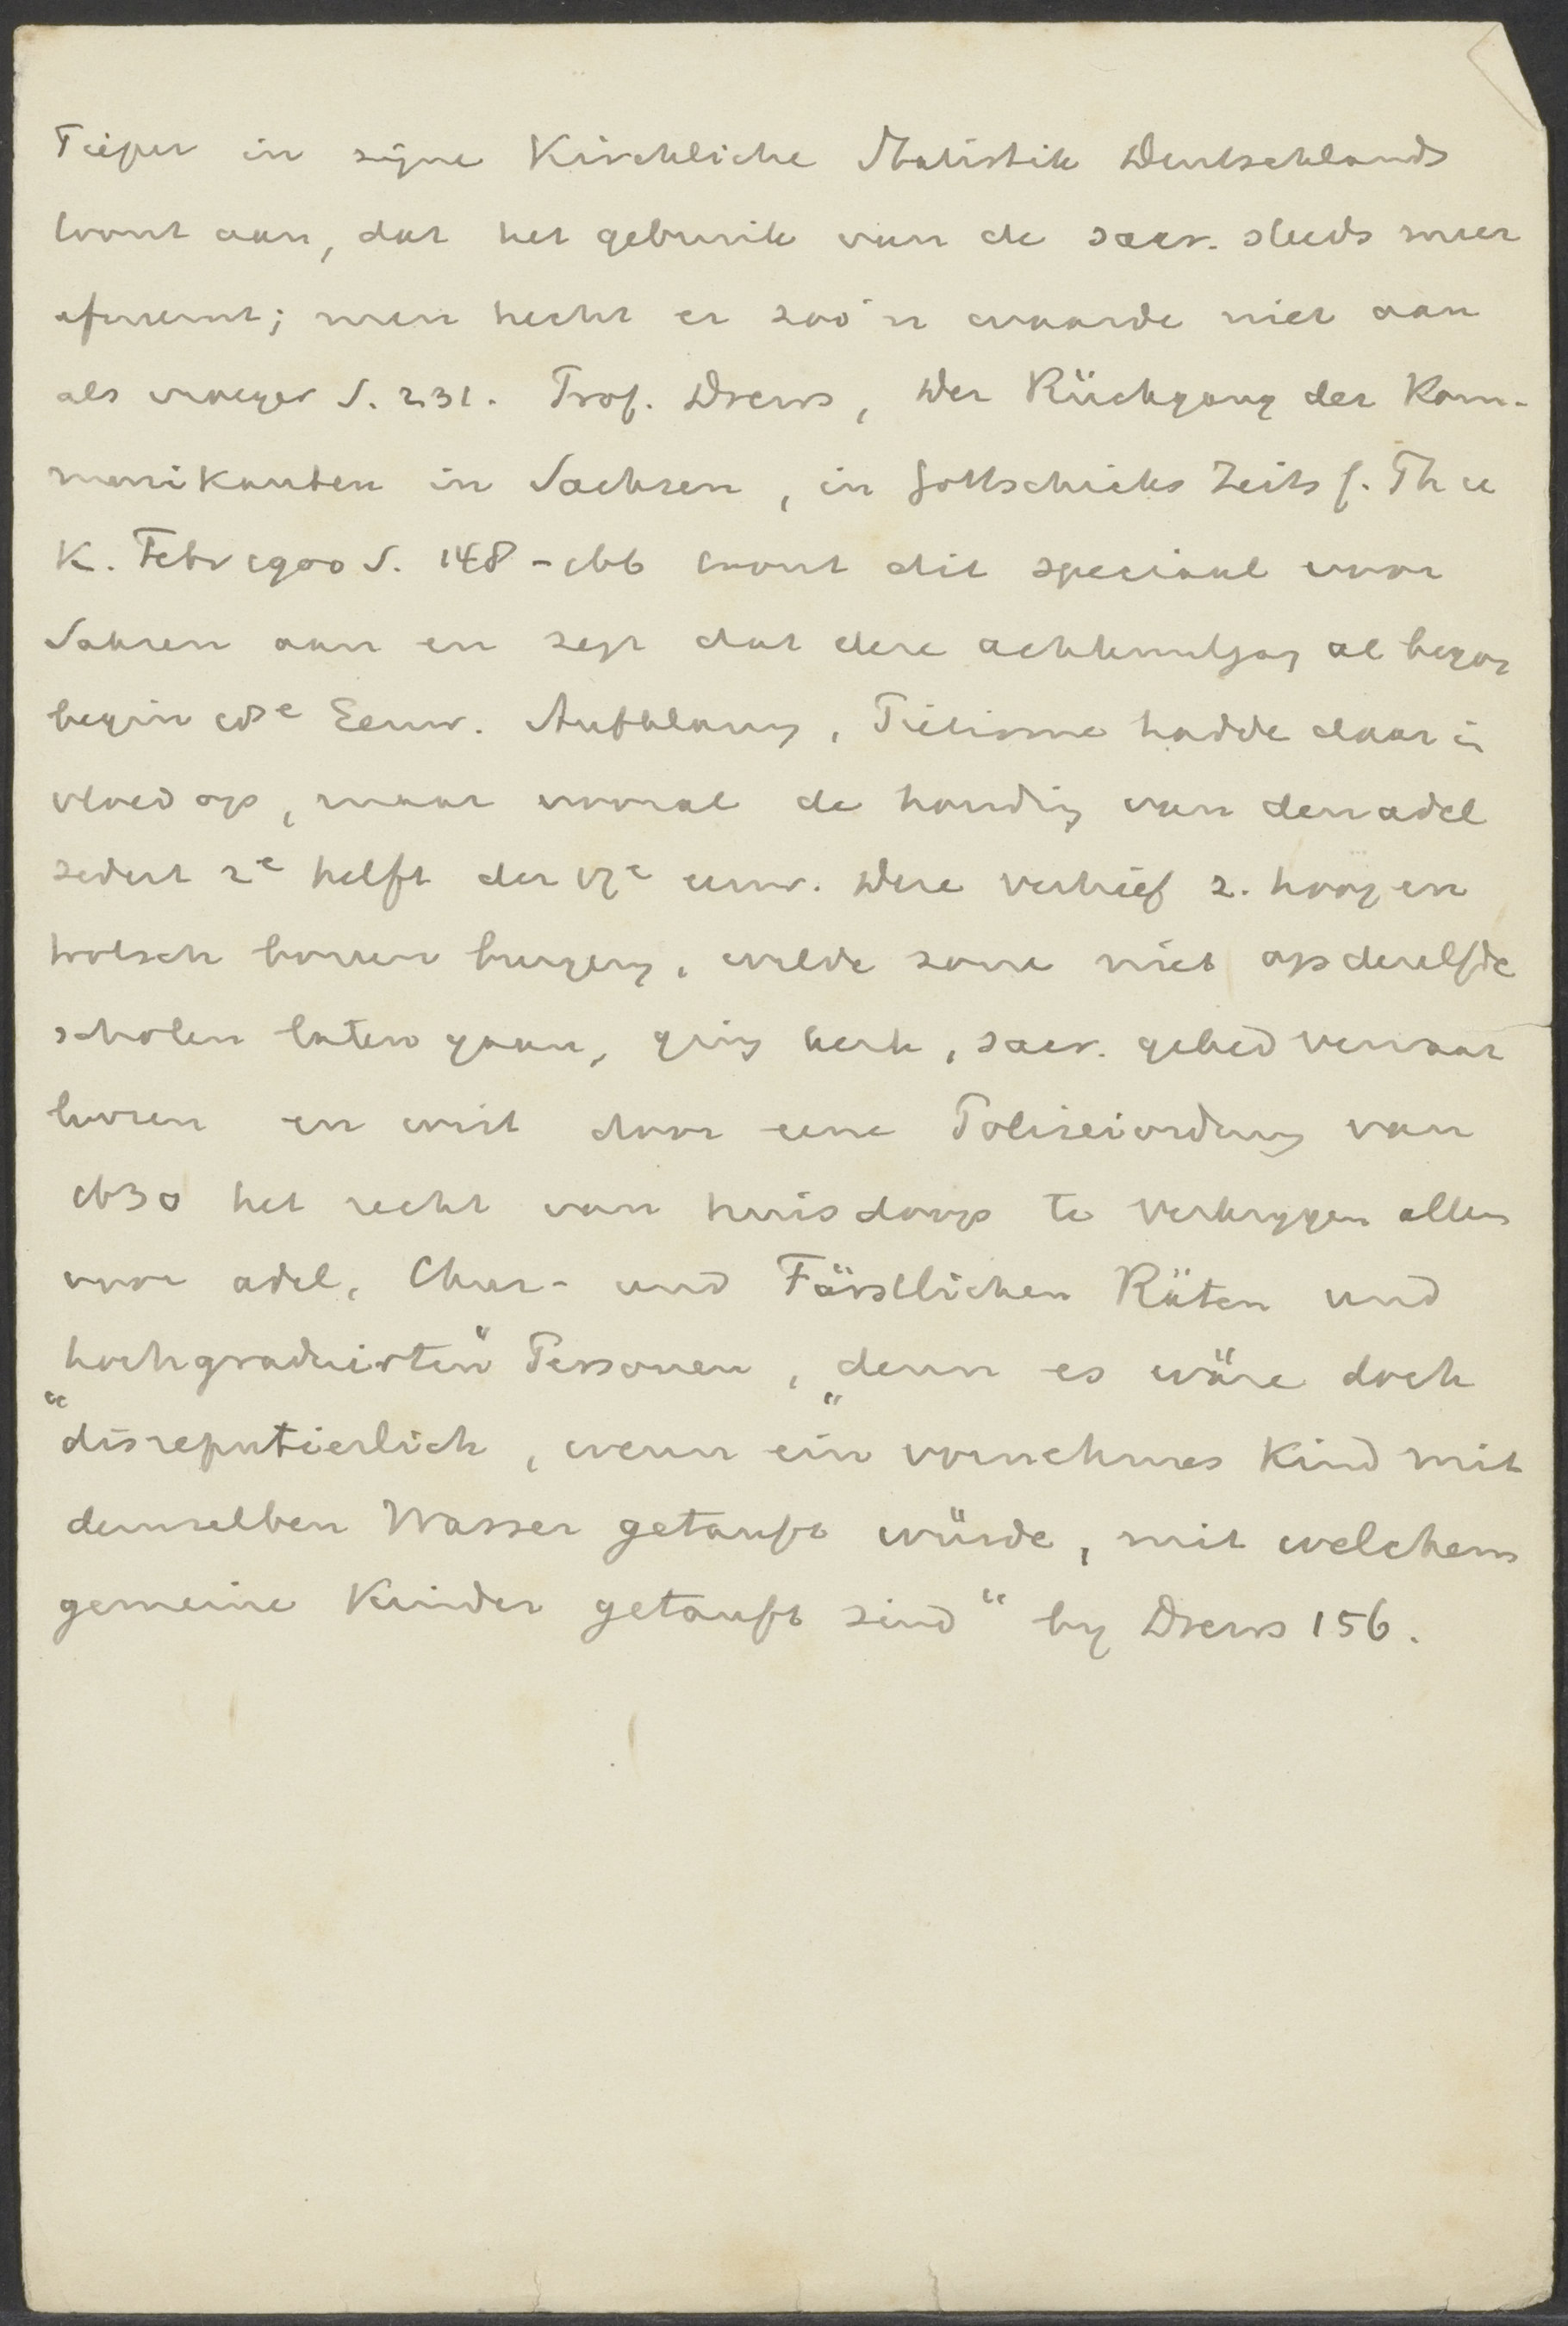 Pieper in zijne Kirchliche Statistik Deutschlands
toont aan, dat het gebruik van de sacr. steeds meer
afneemt; men hecht er zoo'n waarde niet aan
als vroeger S. 231. Prof. Drews, Der Rückgang der Kom-
munikanten in Sachsen, in Gottschicks Zeits f. Th u
K. Febr 1900 S. 148-166 toont dit speciaal voor
Saksen aan en zegt dat deze achteruitgang al begon
begin 18e Eeuw. Aufklärung, Pietisme hadde daar in
vloed op, maar vooral de houding van den adel
sedert 2e helft der 17e eeuw. Deze verhief z. hoog en
trotsch boven burgerij, wilde zone niet op dezelfde
scholen laten gaan, ging kerk, sacr. gebed verwaar
loozen en wist door eene Polizeiordnung van
1630 het recht van huisdoop te verkrijgen alleen
voor adel, Chur- und Fürstlichen Räten und
hochgraduirten" Personen, "denn es wäre doch
"disreputierlich, wenn ein vornehmes Kind mit
demselben Wasser getauft würde, mit welchem
gemeine Kinder getauft sind" by Drews 156.